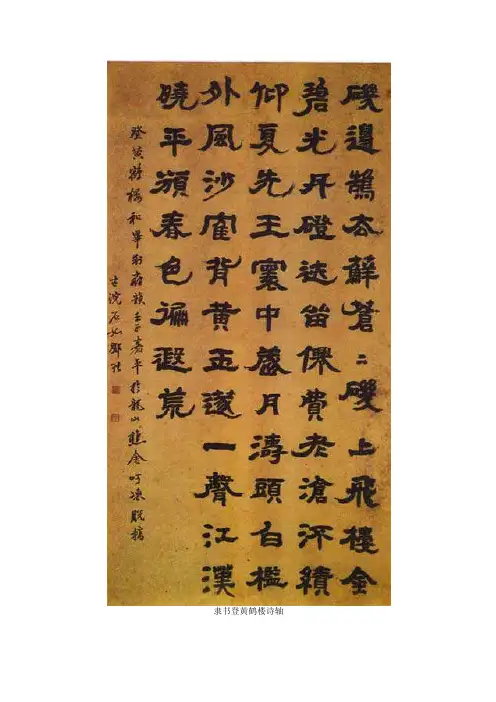 磯邊鶴去蘚蒼二磯上飛樓金
碧光丹磴迹留僊費老滄沔績
仰夏先王寰中歲月濤頭白檻
外風沙雁背黃玉邃一聲江漢
曉平頒春色徧遐荒
登黃鶴樓和畢制府韻壬子嘉平於龍山樵舍呵凍脫稿
古浣石如鄧琰
隶书登黄鹤楼诗轴